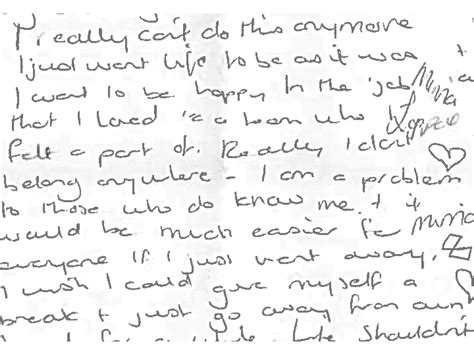 I really can't do this anymore
I just want life to be as it was +
I want to be happy In the 'job'
that I loved in a team who
felt a part of. Really I don't
belong anywhere - I am a problem
to those who do know me. + it
would be much easier for
everyone If I just went away.
I wish I could give myself a
break + just go away from
Life Shouldn't